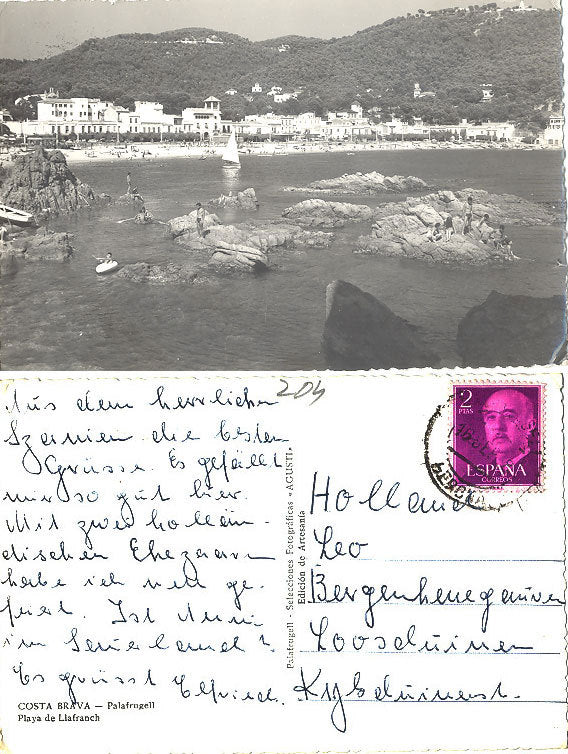 204
Aus dem herrlichen
Spanien die besten
Grüsse. Es gefällt
mir so gut hier.
Mit zwei hollän-
dischen Ehepaaren
habe ich nun ge-
Ist
im
Es grüsst Elfriede.
COSTA BRAVA — Palafrugell
Playa de Llafranch
Palafrugell - Selecciones Fotográficas «AGUSTI»
Edición de Artesanía
2
PTAS
ESPAÑA
CORREOS
GERONA
Holland
Leo
Bergenhenegouwen
Loosduinen